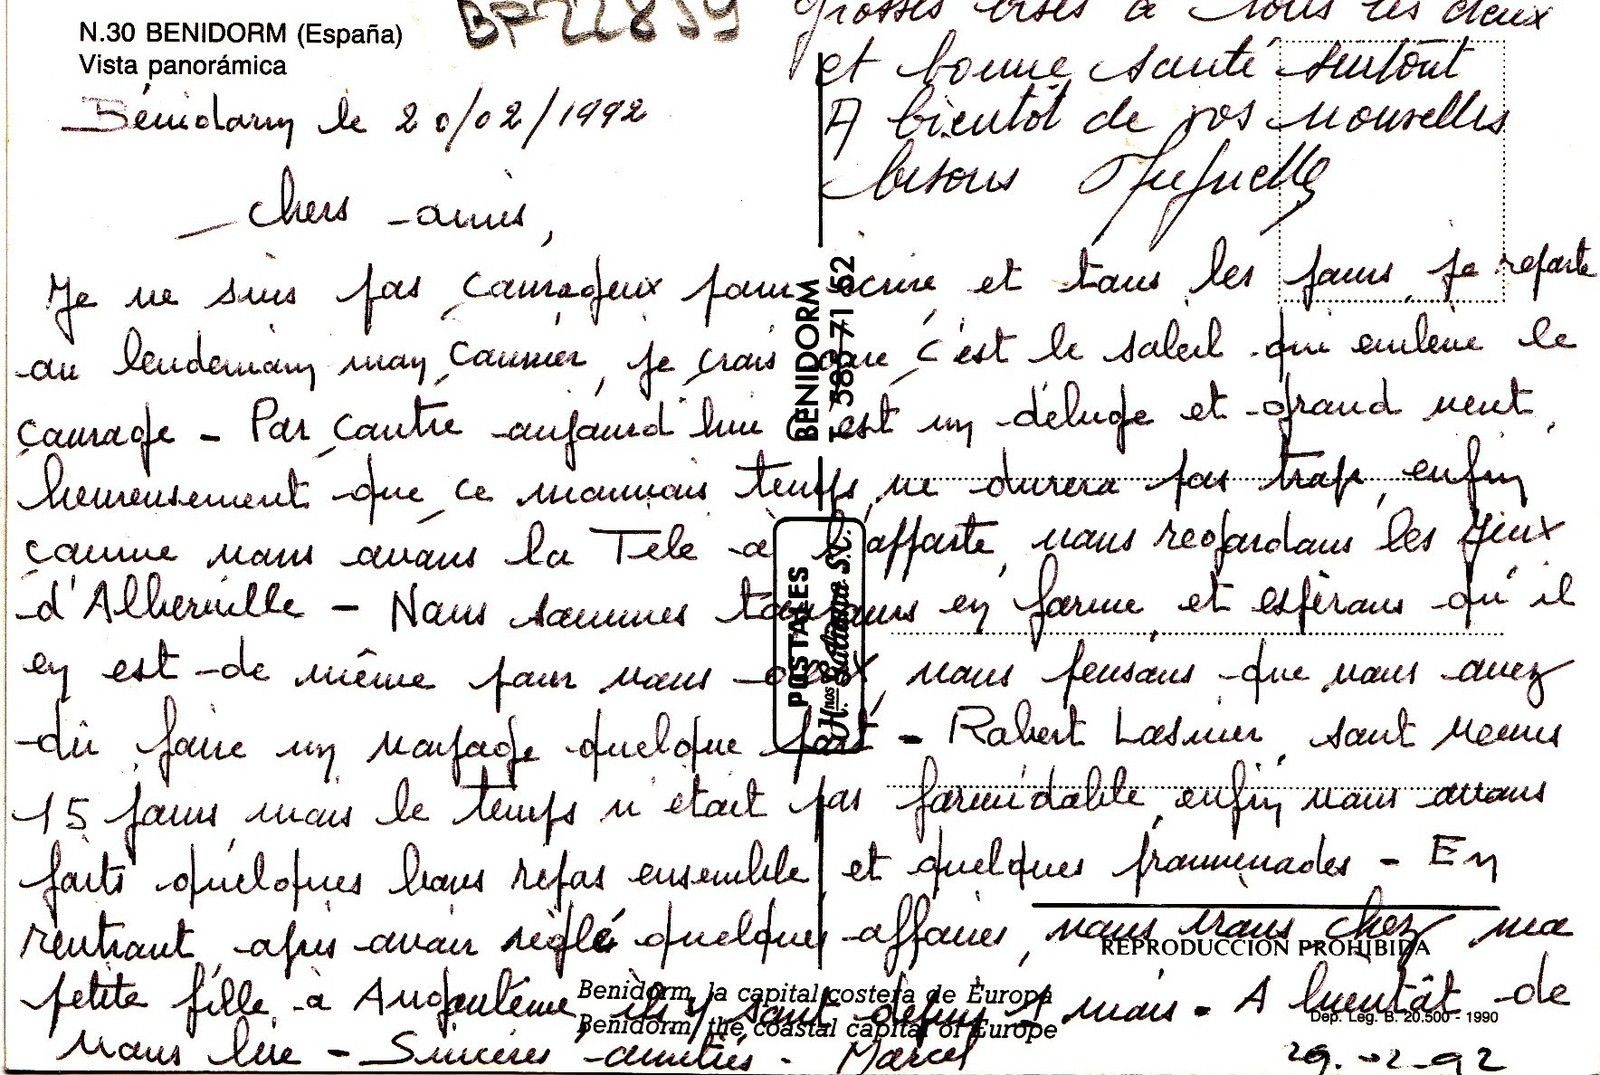 N.30 BENIDORM (España)
Vista panorámica
BF22859
Bénidorm le 20/02/1992
Chers amis,
Je ne suis pas courageux pour écrire et tous les jours, je reporte
au lendemain mon courrier, je crois que c'est le soleil qui enlève le
courage - Par contre aujourd'hui c'est un déluge et grand vent,
heureusement que ce mauvais temps ne durera pas trop, enfin
comme nous avons la Télé à l'apparte, nous regardons les Jeux
d'Alberville - Nous sommes toujours en forme et espérons qu'il
en est de même pour vous deux, nous pensons que vous avez
dû faire un voyage quelque part - Robert Lasnier, sont venus
15 jours mais le temps n'était pas formidable, enfin nous avons
faits quelques bons repas ensemble et quelques prommenades - En
rentrant, après avoir réglé quelques affaires, nous irons chez ma
petite fille à Angoulême, ils y sont depuis 1 mois - A bientôt de
vous lire - Sincères amitiés - Marcel
29.-02-92
Grosses bises à tous les deux
et bonne santé surtout
A bientôt de vos nouvelles
bisous Huguette
BENIDORM
T. 585 71 52
POSTALES
Hnos. Galiana S.L.
REPRODUCCION PROHIBIDA
Benidorm, la capital costera de Europa
Benidorm, the coastal capital of Europe
Dep. Leg. B. 20.500 - 1990